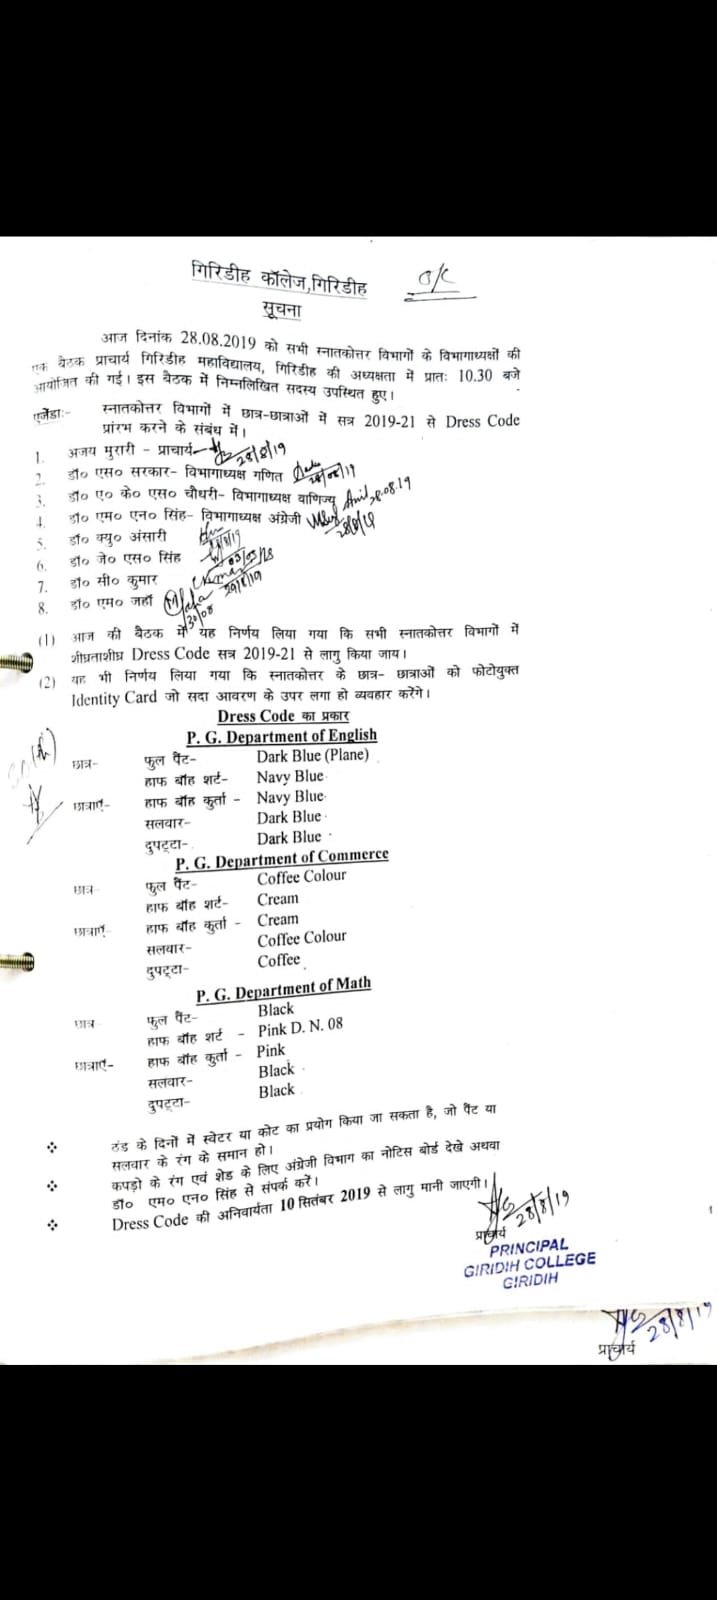 गिरिडीह कॉलेज,गिरिडीह
O/C
सूचना
आज दिनांक 28.08.2019 को सभी स्नातकोत्तर विभागों के विभागाध्यक्षों की
एक बैठक प्राचार्य गिरिडीह महाविद्यालय, गिरिडीह की अध्यक्षता में प्रातः 10.30 बजे
आयोजित की गई। इस बैठक में निम्नलिखित सदस्य उपस्थित हुए।
एजेंडाः- स्नातकोत्तर विभागों में छात्र-छात्राओं में सत्र 2019-21 से Dress Code
प्रांरभ करने के संबंध में।
1. अजय मुरारी - प्राचार्य- 28/8/19
2. डॉ० एस० सरकार- विभागाध्यक्ष गणित 28/08/19
3. डॉ० ए० के० एस० चौधरी- विभागाध्यक्ष वाणिज्य Anil 28.08.19
4. डॉ० एम० एन० सिंह- विभागाध्यक्ष अंग्रेजी 28/8/19
5. डॉ० क्यु० अंसारी
6. डॉ० जे० एस० सिंह
7. डॉ० सी० कुमार 29/8/19
8. डॉ० एम० जहाँ 30/08
(1) आज की बैठक में यह निर्णय लिया गया कि सभी स्नातकोत्तर विभागों में
शीघ्रताशीघ्र Dress Code सत्र 2019-21 से लागु किया जाय।
(2) यह भी निर्णय लिया गया कि स्नातकोत्तर के छात्र- छात्राओं को फोटोयुक्त
Identity Card जो सदा आवरण के उपर लगा हो व्यवहार करेंगे।
Dress Code का प्रकार
P. G. Department of English
छात्र- फुल पैंट- Dark Blue (Plane)
हाफ बाँह शर्ट- Navy Blue
छात्राएँ- हाफ बाँह कुर्ता - Navy Blue
सलवार- Dark Blue
दुपट्टा- Dark Blue
P. G. Department of Commerce
छात्र- फुल पैंट- Coffee Colour
हाफ बाँह शर्ट- Cream
छात्राएँ- हाफ बाँह कुर्ता - Cream
सलवार- Coffee Colour
दुपट्टा- Coffee
P. G. Department of Math
छात्र- फुल पैंट- Black
हाफ बाँह शर्ट - Pink D. N. 08
छात्राएँ- हाफ बाँह कुर्ता - Pink
सलवार- Black
दुपट्टा- Black
❖ ठंड के दिनों में स्वेटर या कोट का प्रयोग किया जा सकता है, जो पैंट या
सलवार के रंग के समान हो।
❖ कपड़ो के रंग एवं शेड के लिए अंग्रेजी विभाग का नोटिस बोर्ड देखे अथवा
डॉ० एम० एन० सिंह से संपर्क करें।
❖ Dress Code की अनिवार्यता 10 सितंबर 2019 से लागु मानी जाएगी।
28/8/19
प्राचार्य
PRINCIPAL
GIRIDIH COLLEGE
GIRIDIH
28/8/19
प्राचार्य